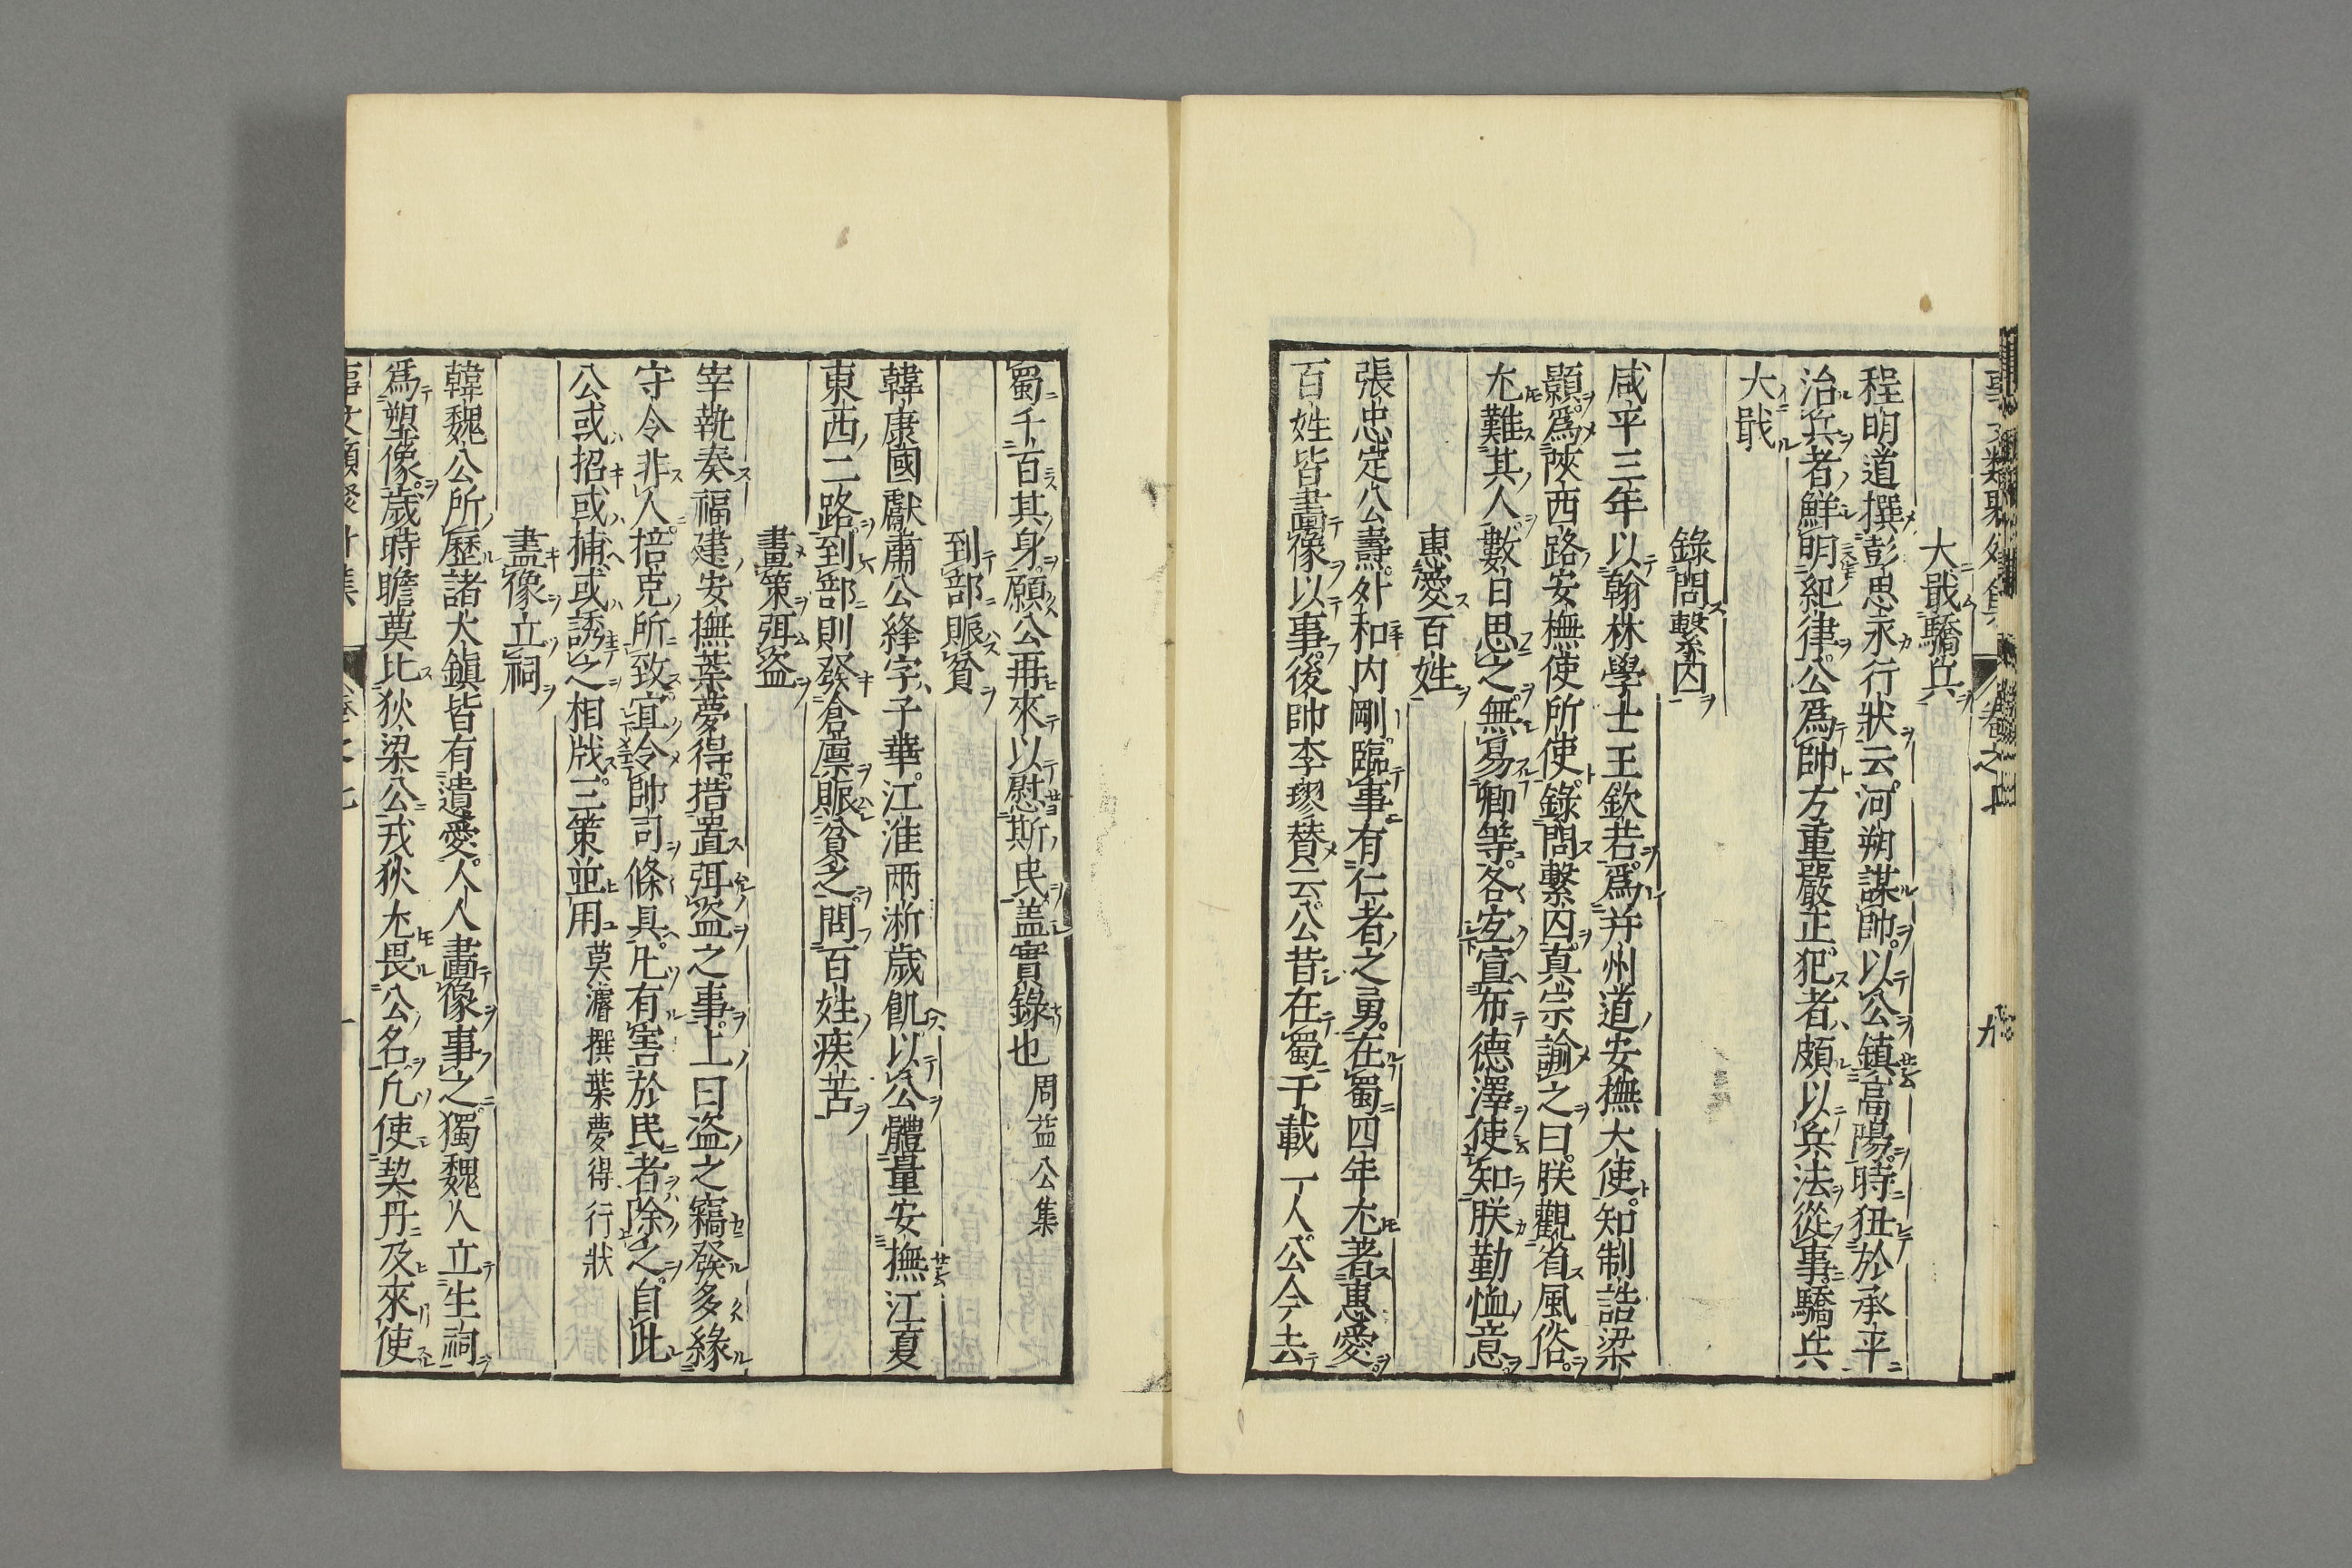 事文類聚外集 卷之七 九
大戢驕兵
程明道撰彭思永行狀云河朔謀帥以公鎮高陽時狃於承平
治兵者鮮明紀律公爲帥方重嚴正犯者頗以兵法從事驕兵
大戢
錄問繫囚
咸平三年以翰林學士王欽若爲并州道安撫大使知制誥梁
顥爲陝西路安撫使所使錄問繫囚真宗諭之曰朕觀省風俗
尤難其人數日思之無易卿等各宜宣布德澤使知朕勤恤意
惠愛百姓
張忠定公壽外和内剛臨事有仁者之勇在蜀四年尤著惠愛
百姓皆畫像以事後帥李璆賛云公昔在蜀千載一人公今去
蜀千百其身願公再來以慰斯民盖實錄也 周益公集
到部賑貧
韓康國獻肅公絳字子華江淮兩淅歲飢以公體量安撫江夏
東西二路到部則發倉廪賑貧乏問百姓疾苦
畫策弭盗
宰執奏福建安撫葉夢得措置弭盗之事上曰盗之竊發多緣
守令非人掊克所致宜令帥司條具凡有害於民者除之自此
公或招或捕或誘之相戕三策並用 莫濬撰葉夢得行狀
畫像立祠
韓魏公所歷諸大鎮皆有遺愛人人畫像事之獨魏人立生祠
爲塑像歲時瞻奠比狄梁公戎狄尤畏公名凡使契丹及來使
事文類聚外集 卷之七